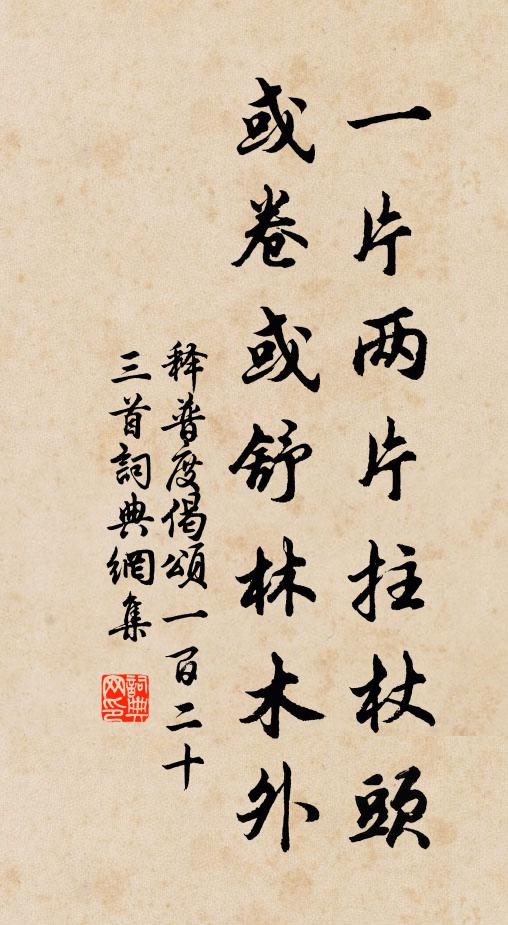 一片两片拄杖頭
或卷或舒林木外
释普度偈頌一百二十
三首詞典網集
詞典网印